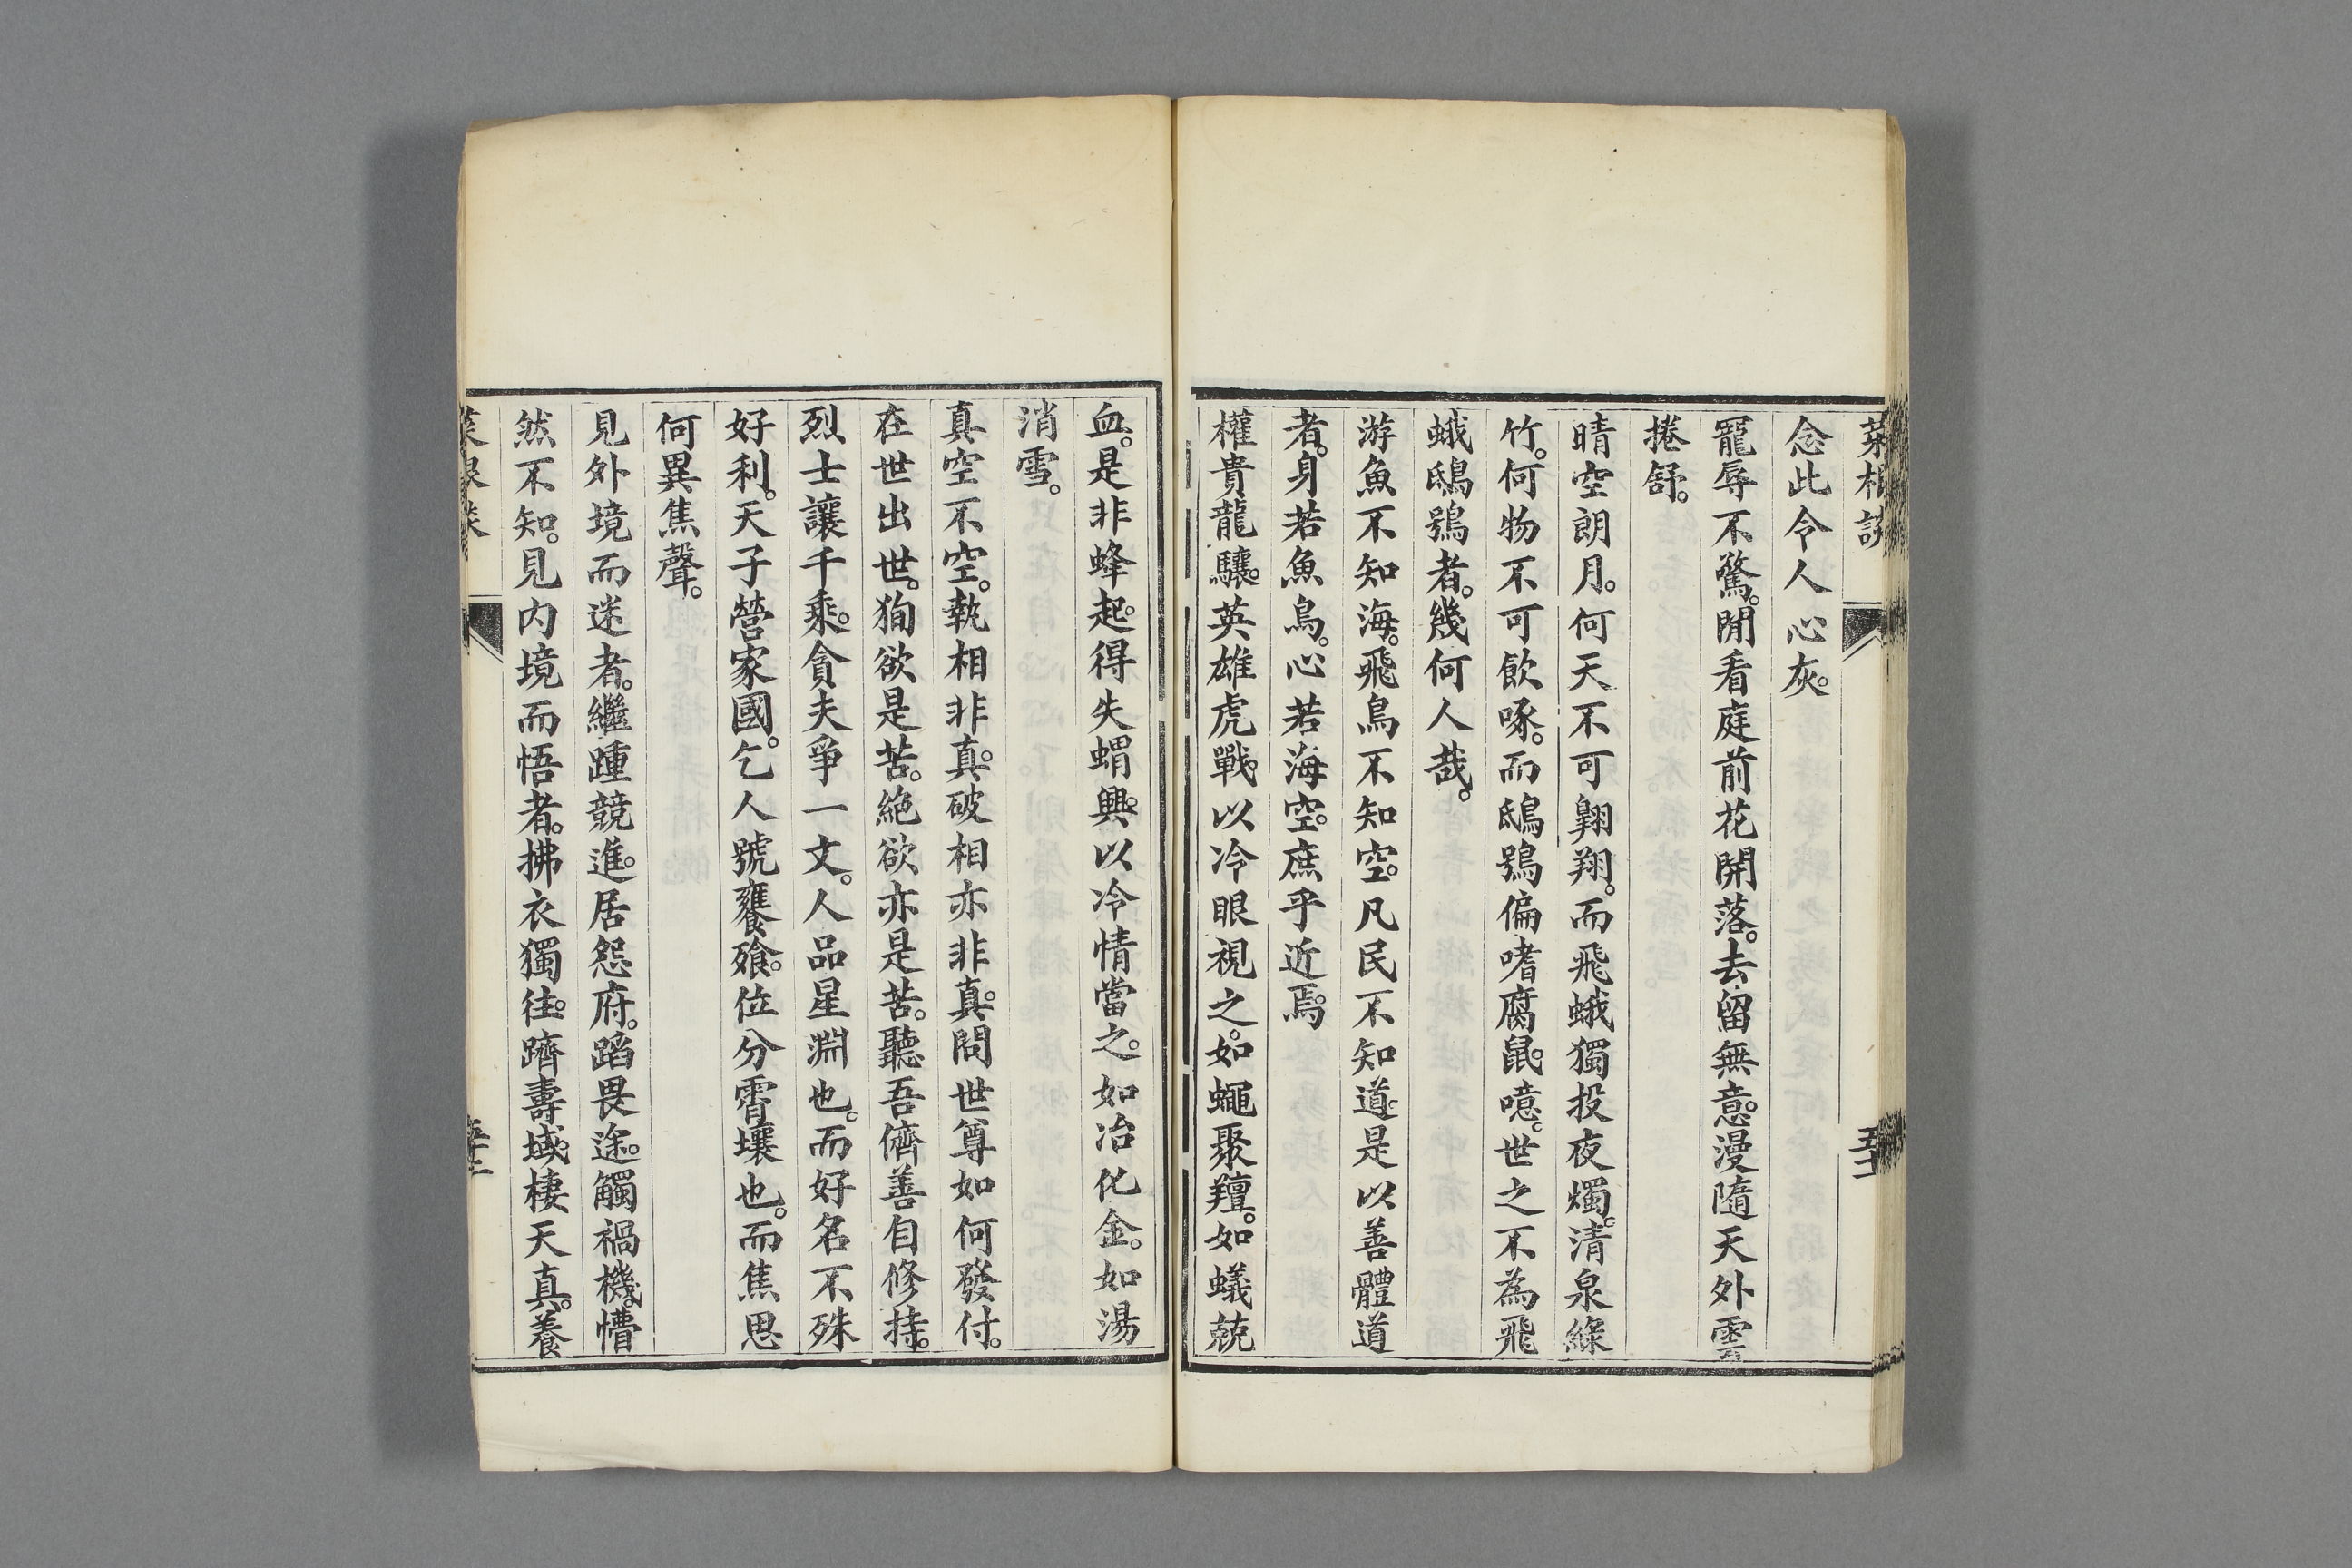 菜根談
念此令人心灰。
寵辱不驚。閒看庭前花開落。去留無意。漫隨天外雲
捲舒。
晴空朗月。何天不可翺翔。而飛蛾獨投夜燭。清泉綠
竹。何物不可飲啄。而鴟鴞偏嗜腐鼠。噫。世之不為飛
蛾鴟鴞者。幾何人哉。
游魚不知海。飛鳥不知空。凡民不知道。是以善體道
者。身若魚鳥。心若海空。庶乎近焉。
權貴龍驤。英雄虎戰。以冷眼視之。如蠅聚羶。如蟻兢
血。是非蜂起。得失蝟興。以冷情當之。如冶化金。如湯
消雪。
真空不空。執相非真。破相亦非真。問世尊如何發付。
在世出世。狥欲是苦。絶欲亦是苦。聽吾儕善自修持。
烈士讓千乘。貪夫爭一文。人品星淵也。而好名不殊
好利。天子營家國。乞人號饔飧。位分霄壤也。而焦思
何異焦聲。
見外境而迷者。繼踵競進。居怨府。蹈畏途。觸禍機。懵
然不知。見內境而悟者。拂衣獨往。躋壽域。棲天真。養